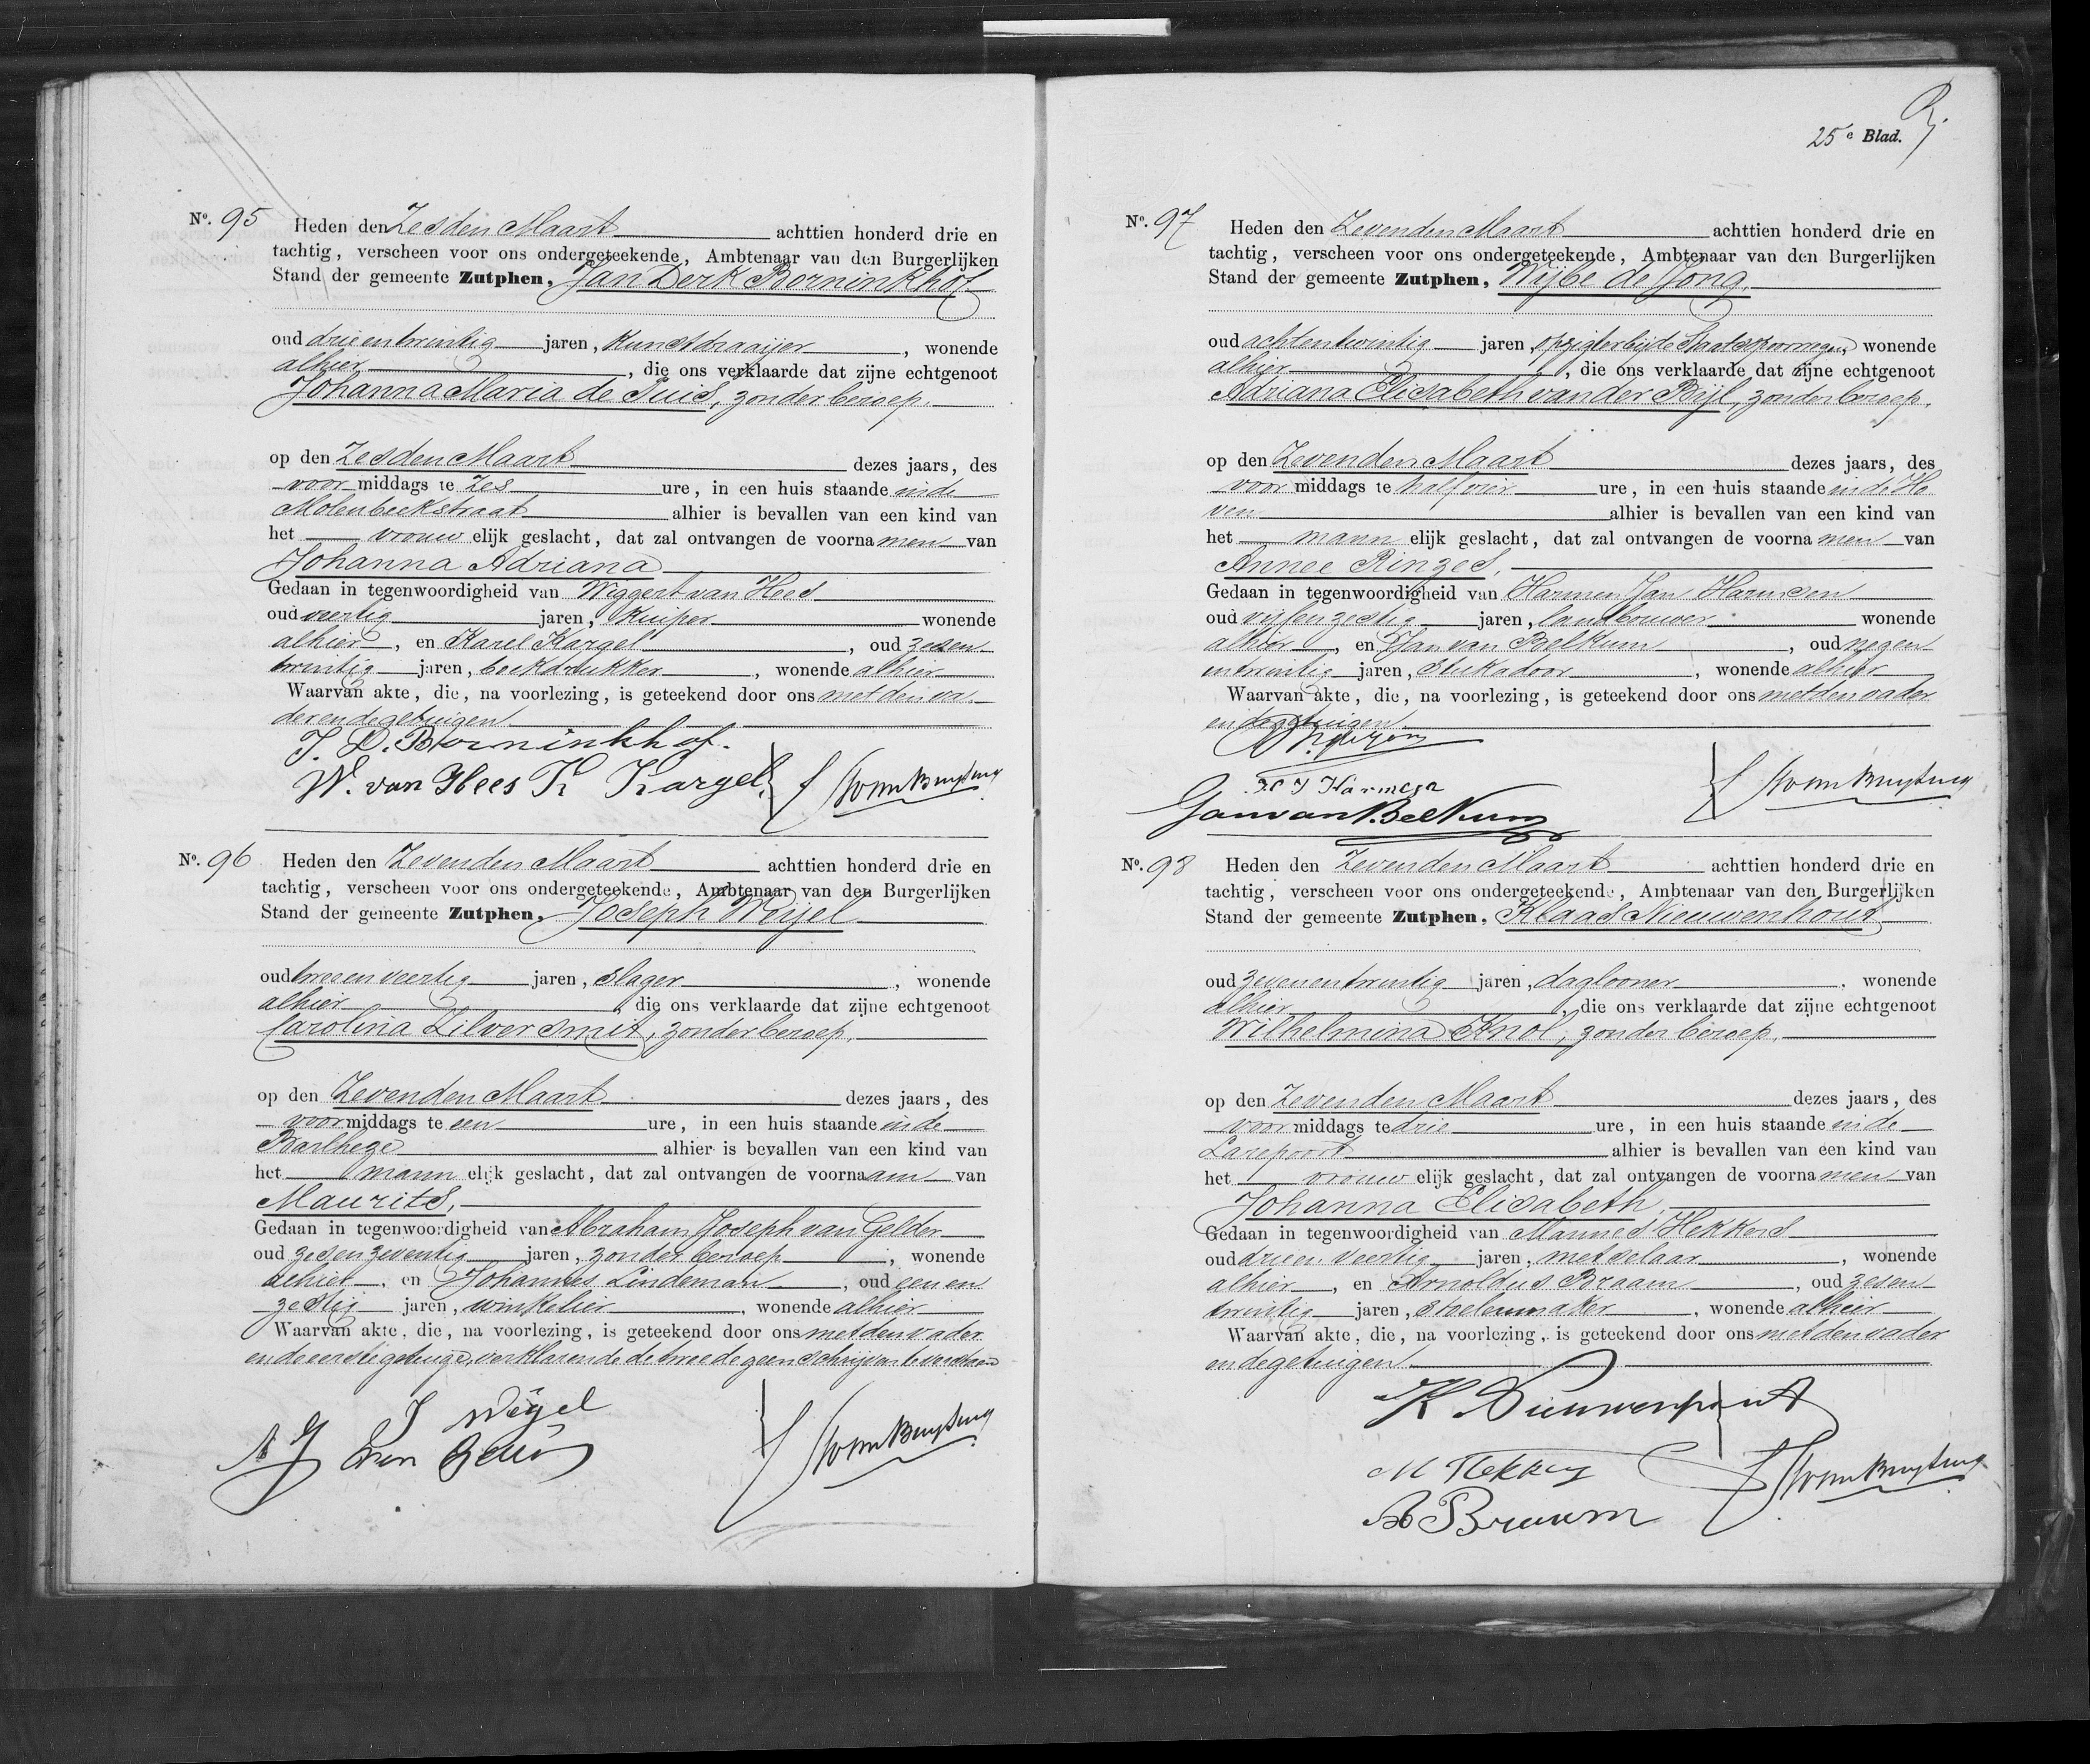 No. 95 Heden den Zesden Maart achttien honderd drie en
tachtig, verscheen voor ons ondergeteekende, Ambtenaar van den Burgerlijken
Stand der gemeente Zutphen, Jan Derk Borninkhof
oud drieentwintig jaren, Kunstdraaijer, wonende
alhier, die ons verklaarde dat zijne echtgenoot
Johanna Maria de Suis, zonder beroep.
op den Zesden Maart dezes jaars, des
voor middags te Zes ure, in een huis staande in de
Molenbeekstraat alhier is bevallen van een kind van
het vrouw elijk geslacht, dat zal ontvangen de voorna men van
Johanna Adriana
Gedaan in tegenwoordigheid van Wiggert van Hees
oud veertig jaren, Kuiper wonende
alhier, en Karel Kargel, oud zesen
twintig jaren, boekdrukker, wonende alhier
Waarvan akte, die, na voorlezing, is geteekend door ons met den va
der en de getuigen
J. D. Borninkhof.
W. van Hees K Kargel
No. 96 Heden den Zevenden Maart achttien honderd drie en
tachtig, verscheen voor ons ondergeteekende, Ambtenaar van den Burgerlijken
Stand der gemeente Zutphen, Joseph Weijel
oud tweeenveertig jaren, slager, wonende
alhier, die ons verklaarde dat zijne echtgenoot
Carolina Zilversmit, zonder beroep,
op den Zevenden Maart dezes jaars, des
voor middags te een ure, in een huis staande in de
Barlheze alhier is bevallen van een kind van
het mann elijk geslacht, dat zal ontvangen de voorna am van
Maurits,
Gedaan in tegenwoordigheid van Abraham Joseph van Gelder
oud zesenzeventig jaren, zonder beroep, wonende
alhier, en Johannes Lindeman, oud een en
zestig jaren, winkelier, wonende alhier
Waarvan akte, die, na voorlezing, is geteekend door ons met den vader
en de eerste getuige, verklarende de tweede geen schrijven te verstaan
J Weijel
A J van Gelder
25e Blad.
No. 97 Heden den Zevenden Maart achttien honderd drie en
tachtig, verscheen voor ons ondergeteekende, Ambtenaar van den Burgerlijken
Stand der gemeente Zutphen, Wijbe de Jong,
oud achtentwintig jaren, opzigter bij de Staatsspoorwegen, wonende
alhier, die ons verklaarde dat zijne echtgenoot
Adriana Elisabeth van der Bijl, zonder beroep,
op den Zevenden Maart dezes jaars, des
voor middags te half vier ure, in een huis staande in de Ho
ven alhier is bevallen van een kind van
het mann elijk geslacht, dat zal ontvangen de voorna men van
Annee Rinzes,
Gedaan in tegenwoordigheid van Harmen Jan Harmsen
oud vijfenzestig jaren, landbouwer wonende
alhier, en Jan van Belkum, oud negen
entwintig jaren, stukadoor, wonende alhier
Waarvan akte, die, na voorlezing, is geteekend door ons met den vader
en de getuigen
Jan van Belkum
No. 98 Heden den Zevenden Maart achttien honderd drie en
tachtig, verscheen voor ons ondergeteekende, Ambtenaar van den Burgerlijken
Stand der gemeente Zutphen, Klaas Nieuwenhout
oud zevenentwintig jaren, daglooner, wonende
alhier, die ons verklaarde dat zijne echtgenoot
Wilhelmina Knol, zonder beroep,
op den Zevenden Maart dezes jaars, des
voor middags te drie ure, in een huis staande in de
Larepoort alhier is bevallen van een kind van
het vrouw elijk geslacht, dat zal ontvangen de voorna men van
Johanna Elisabeth,
Gedaan in tegenwoordigheid van Mannes Hekkers
oud drieenveertig jaren, metselaar, wonende
alhier, en Arnoldus Braam, oud zesen
twintig jaren, stoelenmaker, wonende alhier
Waarvan akte, die, na voorlezing, is geteekend door ons met den vader
en de getuigen
K Nieuwenhout
M Hekkers
A Braam